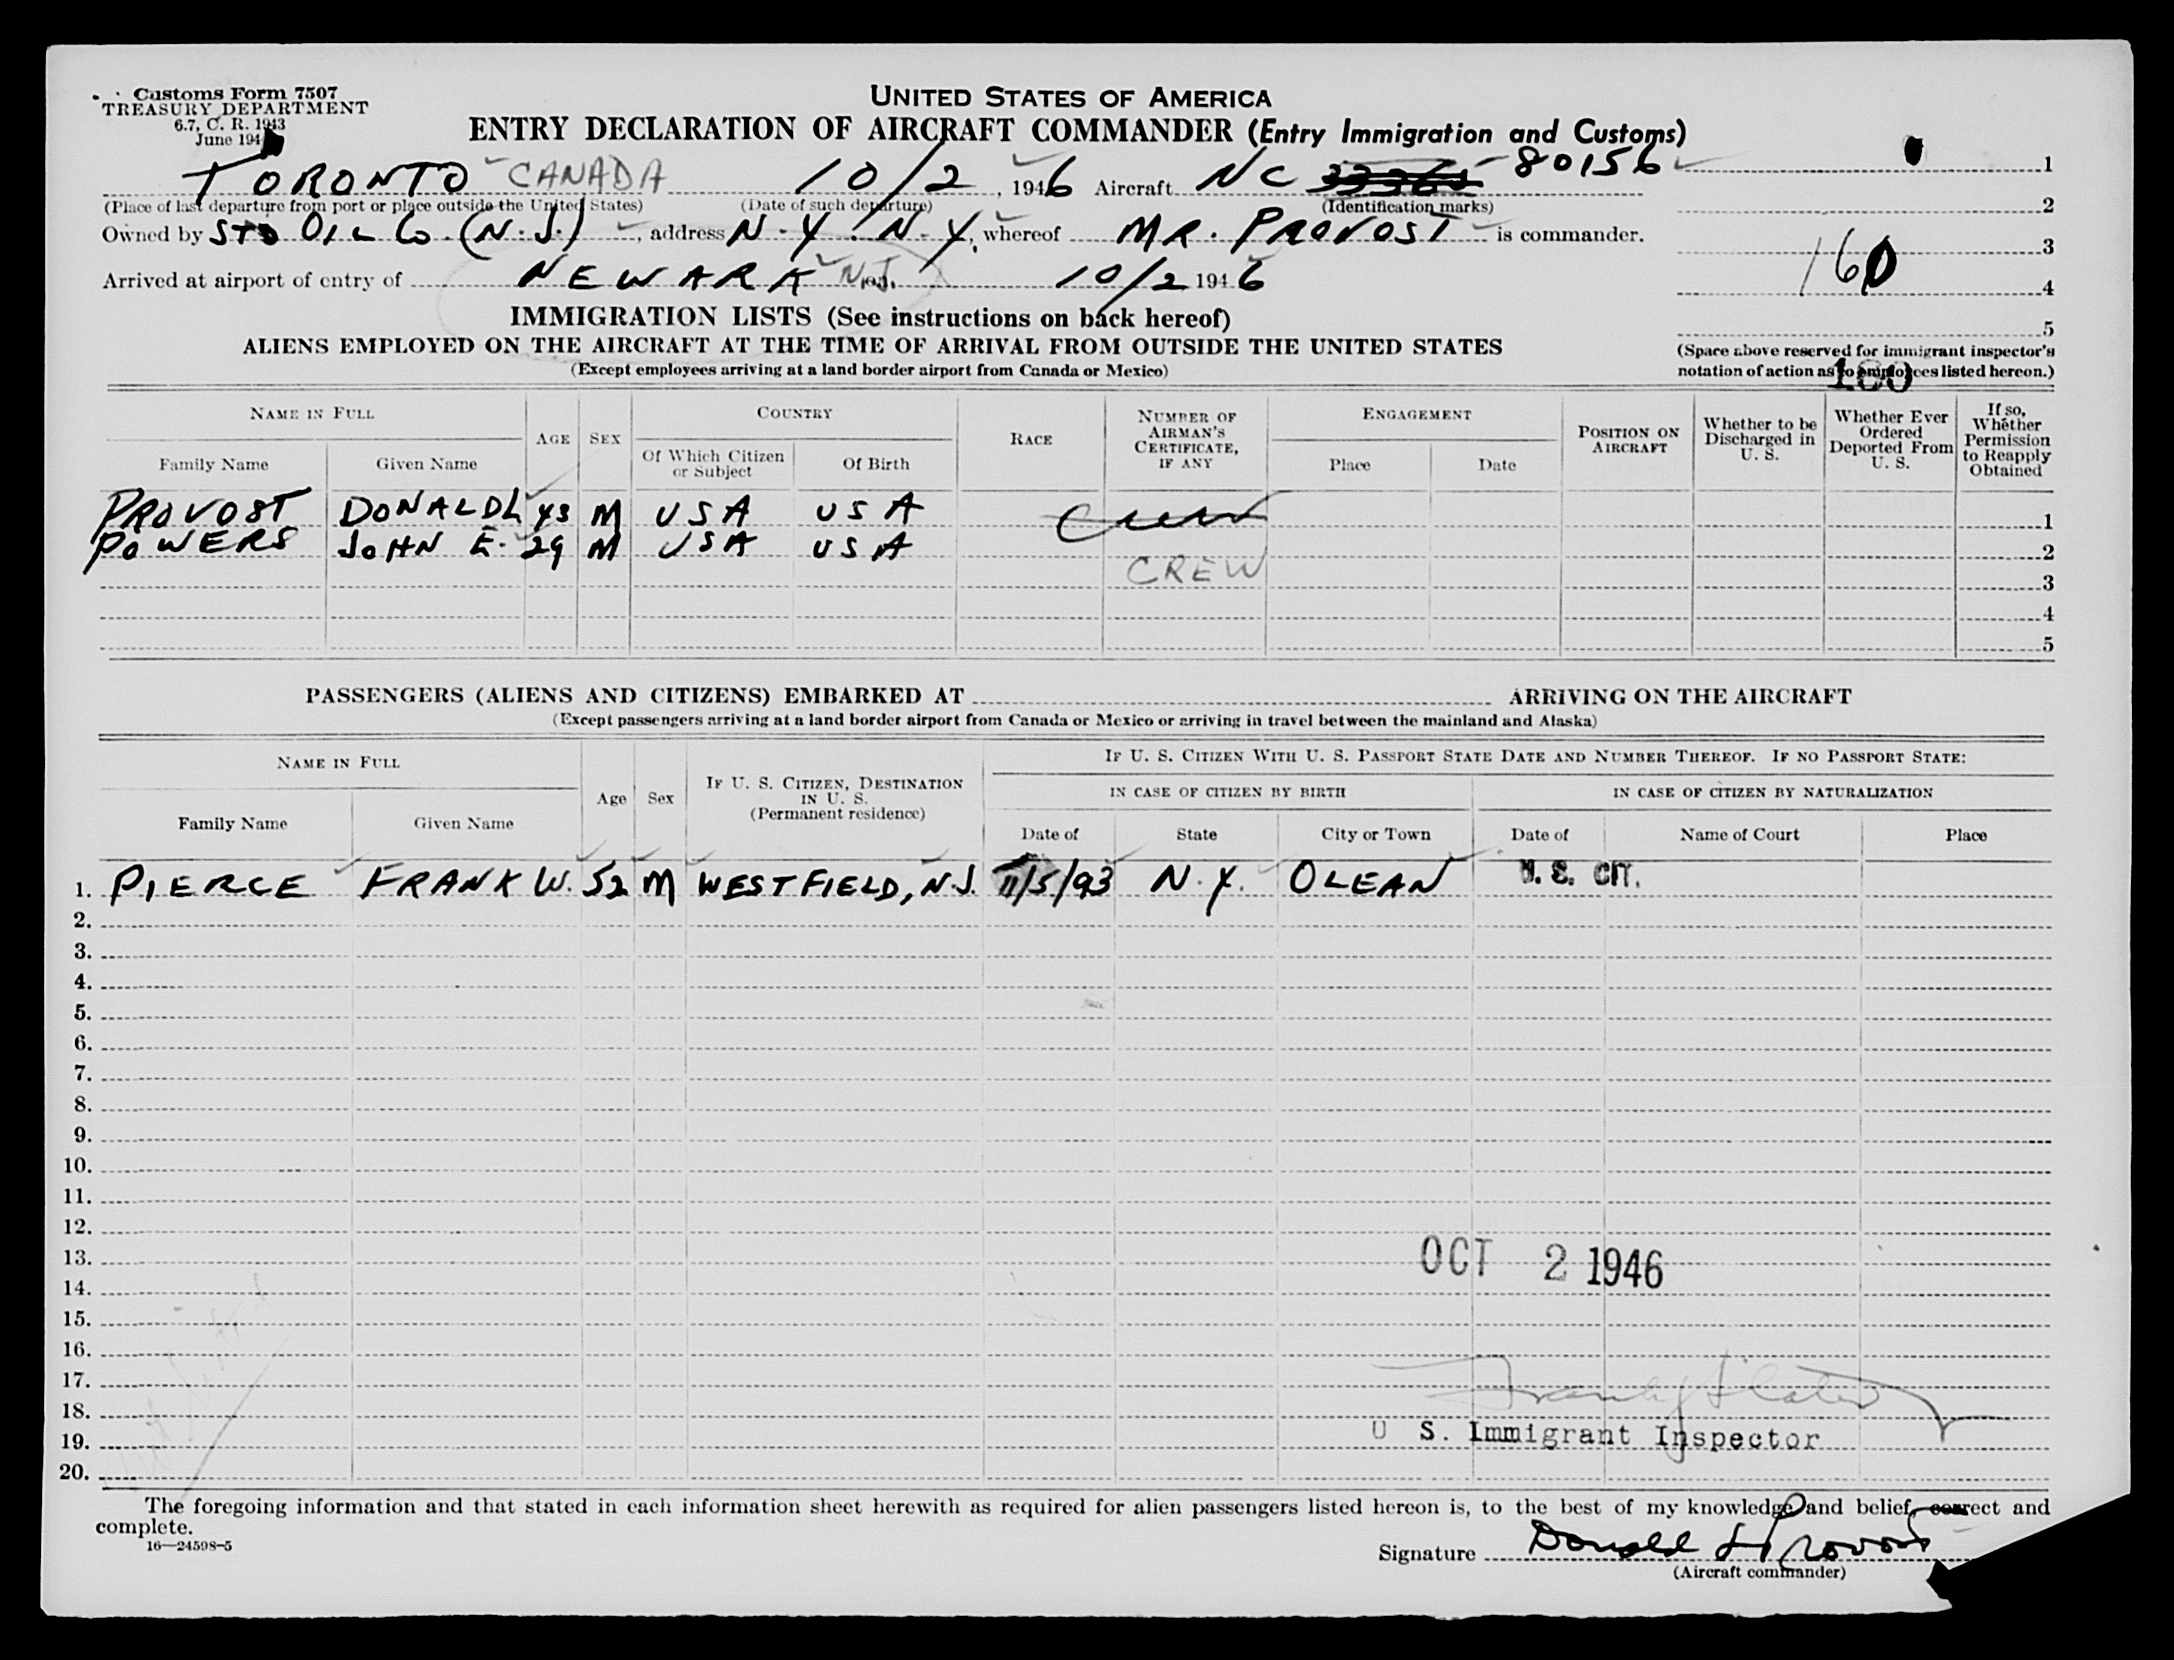 Customs Form 7507
TREASURY DEPARTMENT
6.7, C. R. 1943
June 194
UNITED STATES OF AMERICA
ENTRY DECLARATION OF AIRCRAFT COMMANDER (Entry Immigration and Customs)
TORONTO CANADA 10/2, 1946 Aircraft NC 80156 1
(Place of last departure from port or place outside the United States) (Date of such departure) (Identification marks)
2
Owned by STD OIL Co. (N.J.), address N.Y. N.Y., whereof MR. PROVOST is commander.
160 3
Arrived at airport of entry of NEWARK N.J. 10/2 1946
4
IMMIGRATION LISTS (See instructions on back hereof)
5
ALIENS EMPLOYED ON THE AIRCRAFT AT THE TIME OF ARRIVAL FROM OUTSIDE THE UNITED STATES
(Except employees arriving at a land border airport from Canada or Mexico)
(Space above reserved for immigrant inspector's
notation of action as to employees listed hereon.)
NAME IN FULL AGE SEX COUNTRY RACE NUMBER OF AIRMAN'S CERTIFICATE, IF ANY ENGAGEMENT POSITION ON AIRCRAFT Whether to be Discharged in U. S. Whether Ever Ordered Deported From U. S. If so, Whether Permission to Reapply Obtained
Family Name Given Name Of Which Citizen or Subject Of Birth Place Date
PROVOST DONALD L 43 M USA USA Crew 1
POWERS JOHN E. 29 M USA USA 2
CREW 3
4
5
PASSENGERS (ALIENS AND CITIZENS) EMBARKED AT ARRIVING ON THE AIRCRAFT
(Except passengers arriving at a land border airport from Canada or Mexico or arriving in travel between the mainland and Alaska)
NAME IN FULL Age Sex IF U. S. CITIZEN, DESTINATION IN U. S. (Permanent residence) IF U. S. CITIZEN WITH U. S. PASSPORT STATE DATE AND NUMBER THEREOF. IF NO PASSPORT STATE:
IN CASE OF CITIZEN BY BIRTH IN CASE OF CITIZEN BY NATURALIZATION
Family Name Given Name Date of State City or Town Date of Name of Court Place
1. PIERCE FRANK W. 52 M WESTFIELD, N.J. 11/5/93 N.Y. OLEAN U. S. CIT.
2.
3.
4.
5.
6.
7.
8.
9.
10.
11.
12.
13. OCT 2 1946
14.
15.
16.
17.
18.
19. U S. Immigrant Inspector
20.
The foregoing information and that stated in each information sheet herewith as required for alien passengers listed hereon is, to the best of my knowledge and belief, correct and
complete.
16—24598-5
Signature Donald L Provost
(Aircraft commander)